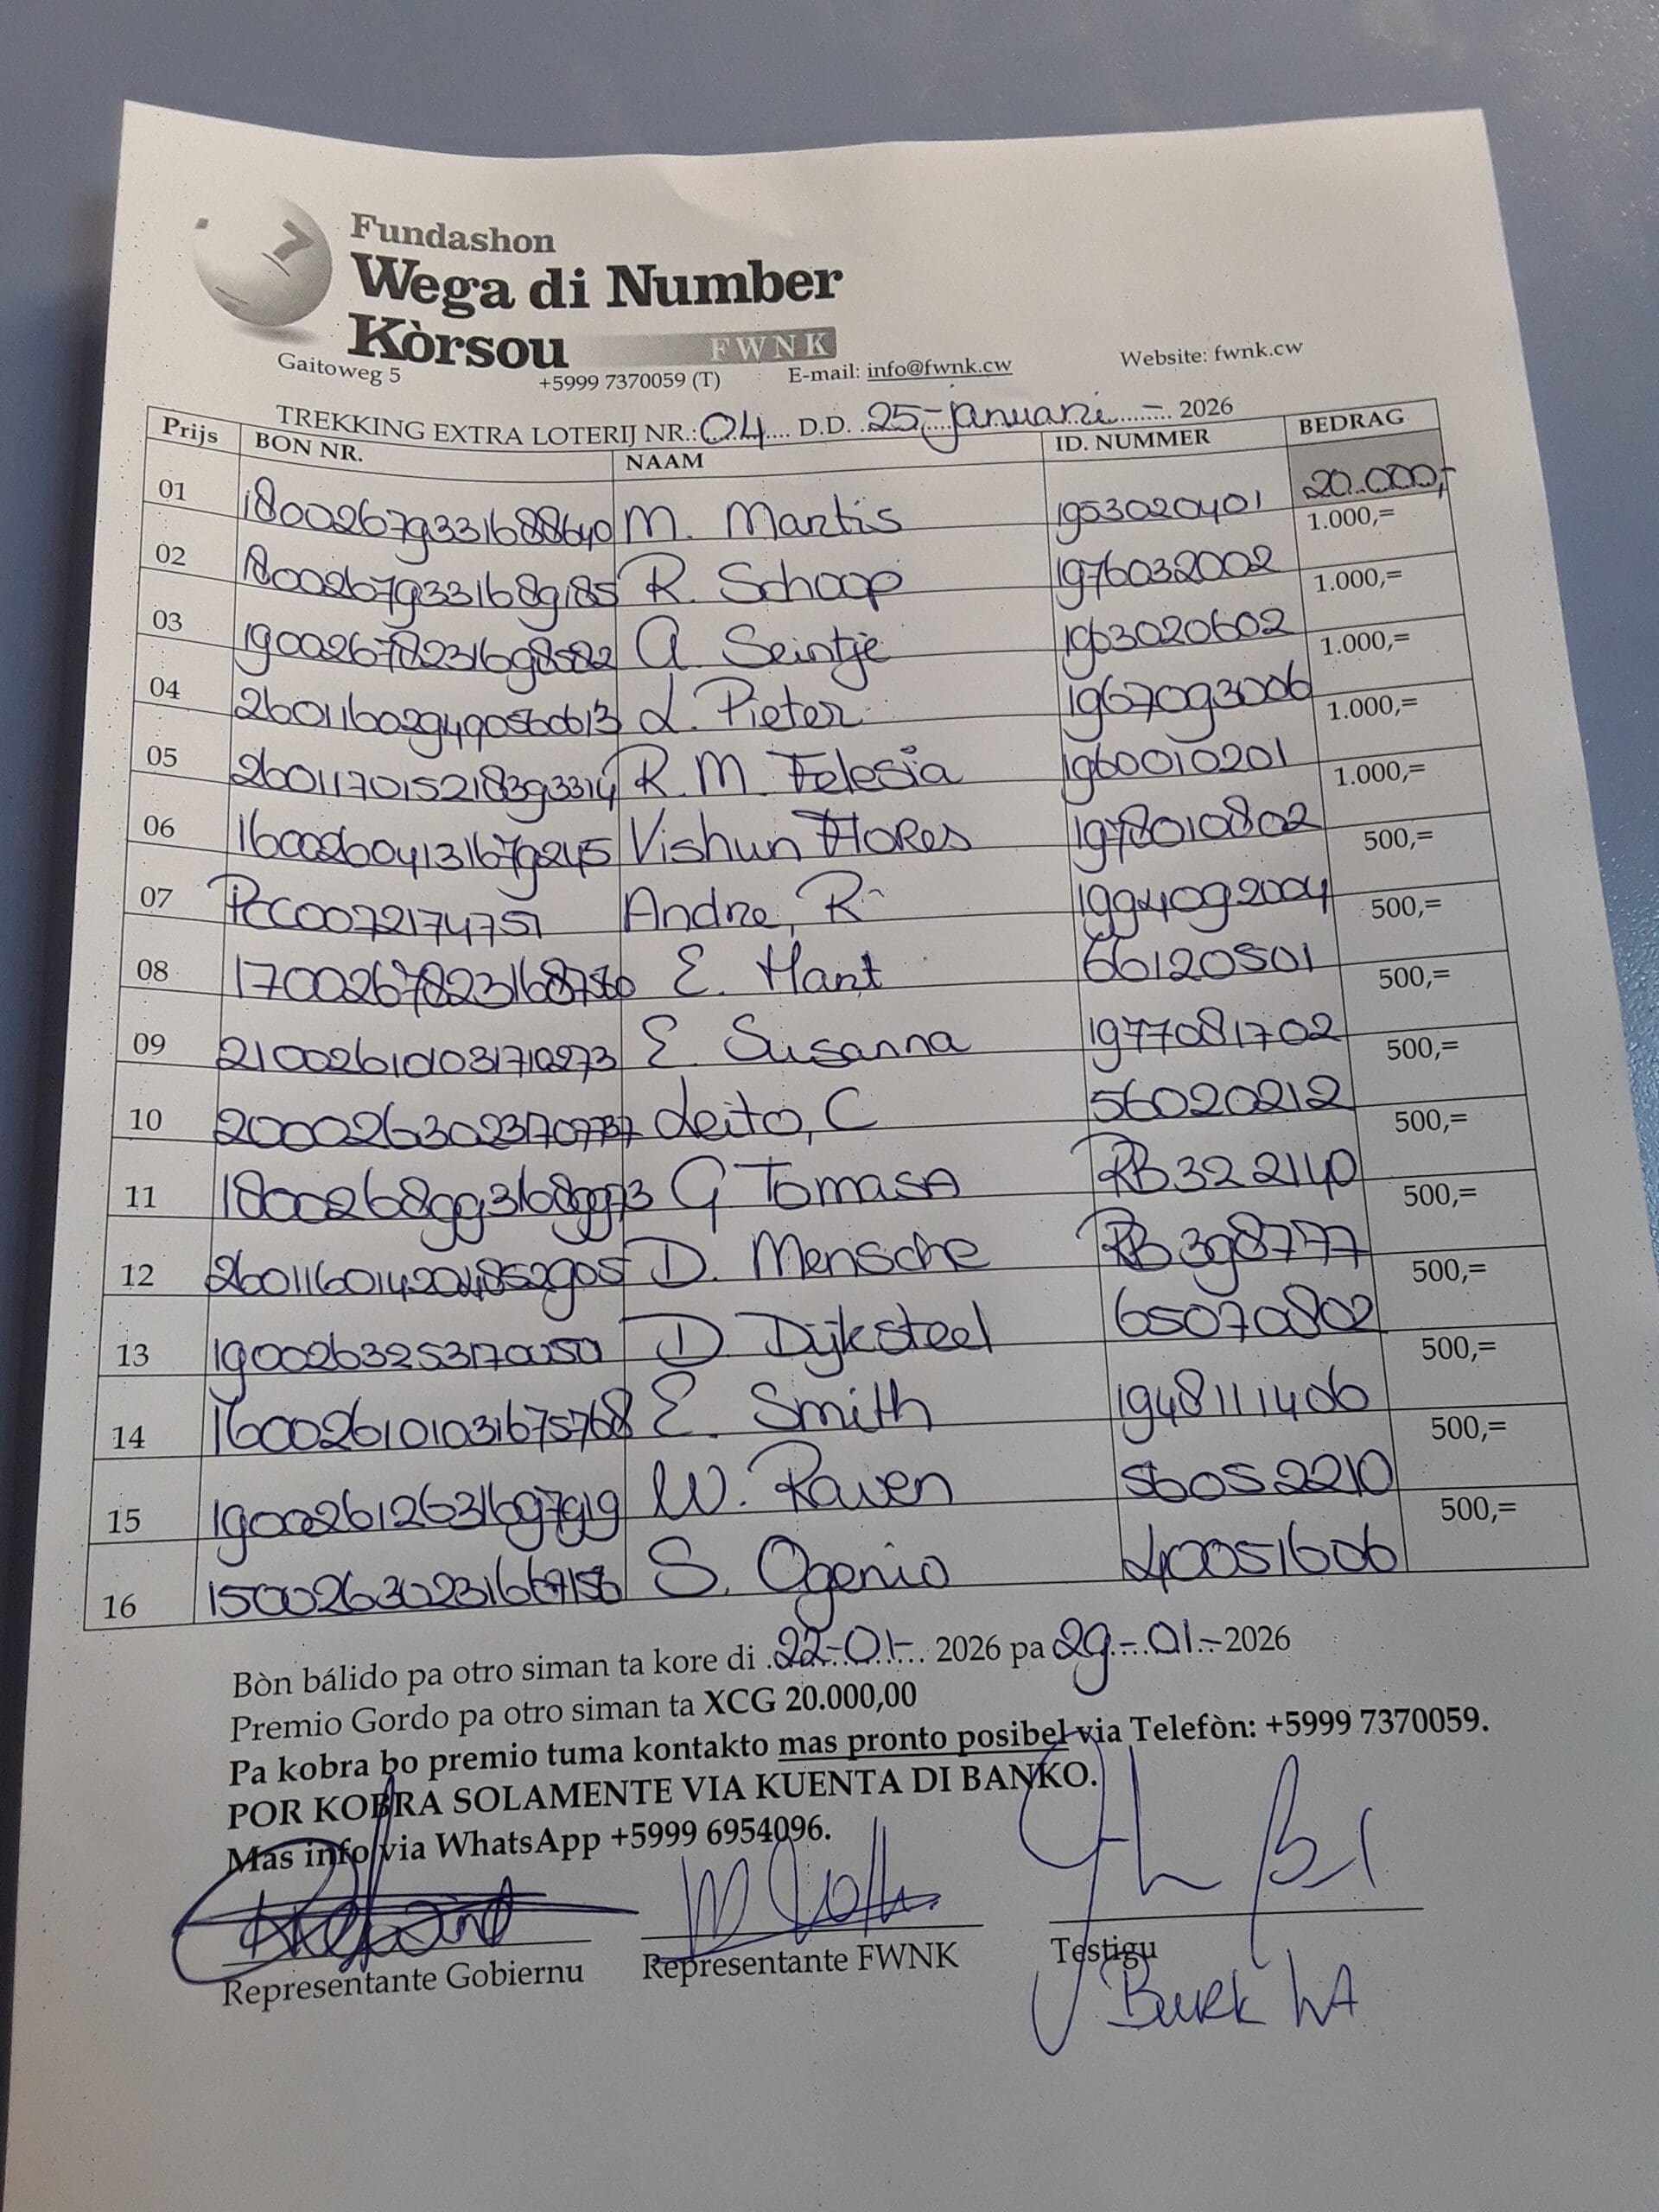 Fundashon
Wega di Number
Kòrsou FWNK
Gaitoweg 5 +5999 7370059 (T) E-mail: info@fwnk.cw Website: fwnk.cw
TREKKING EXTRA LOTERIJ NR.: 04 D.D. 25-januari- 2026
Prijs BON NR. NAAM ID. NUMMER BEDRAG
01 18002679331688640 M. Martis 1953020401 20.000,-
02 18002679331689185 R. Schoop 1976032002 1.000,=
03 19002678231698582 A. Seintje 1963020602 1.000,=
04 L. Pieter 1967093006 1.000,=
05 260117015218393314 R.M. Felesia 1960010201 1.000,=
06 16002604131679245 Vishun Flores 1978010802 1.000,=
07 PCC0072174751 Andre, R 1994092004 500,=
08 E. Hart 66120501 500,=
09 210026101031710273 E Susanna 1977081702 500,=
10 Leito, C 56020212 500,=
11 G Tomasa RB322140 500,=
12 D. Mensche RB398777 500,=
13 D. Dijksteel 65070802 500,=
14 160026101031675768 E. Smith 1948111406 500,=
15 19002612631697919 W. Raven 56052210 500,=
16 S. Ogenio 40051606 500,=
500,=
Bòn bálido pa otro siman ta kore di 22-01- 2026 pa 29-01-2026
Premio Gordo pa otro siman ta XCG 20.000,00
Pa kobra bo premio tuma kontakto mas pronto posibel via Telefòn: +5999 7370059.
POR KOBRA SOLAMENTE VIA KUENTA DI BANKO.
Mas info via WhatsApp +5999 6954096.
Representante Gobiernu Representante FWNK Testigu